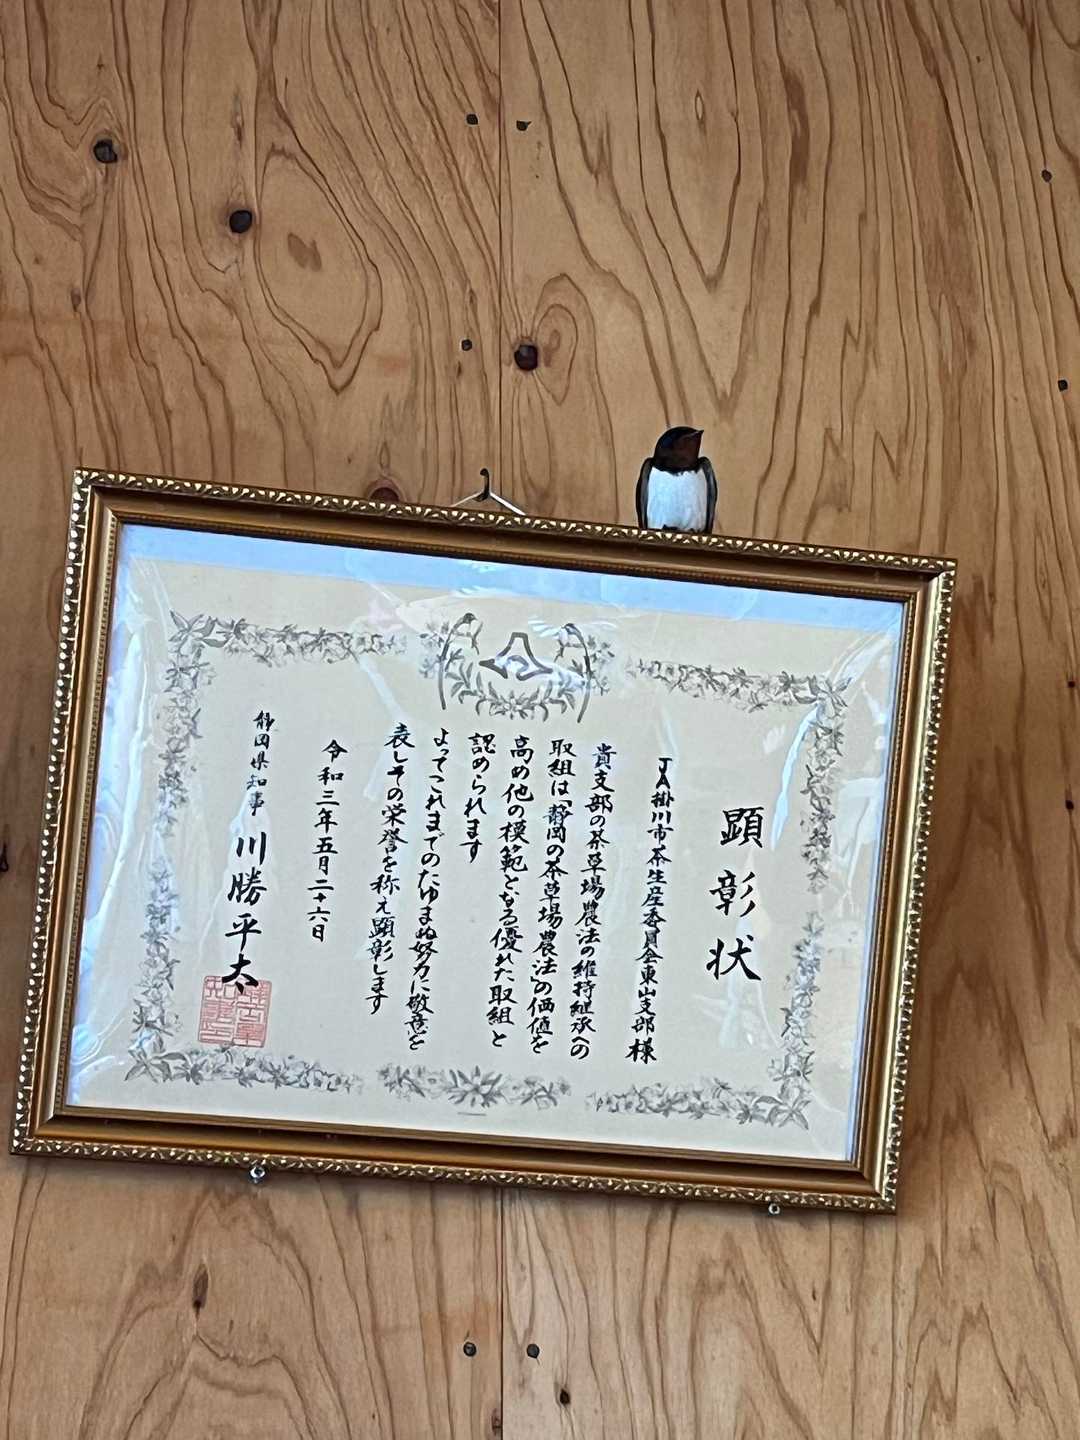 顕彰状
JA掛川市茶生産委員会東山支部様
貴支部の茶草場農法の維持継承への
取組は「静岡の茶草場農法」の価値を
高め他の模範となる優れた取組と
認められます
よってこれまでのたゆまぬ努力に敬意を
表しその栄誉を称え顕彰します
令和三年五月二十六日
静岡県知事 川勝平太